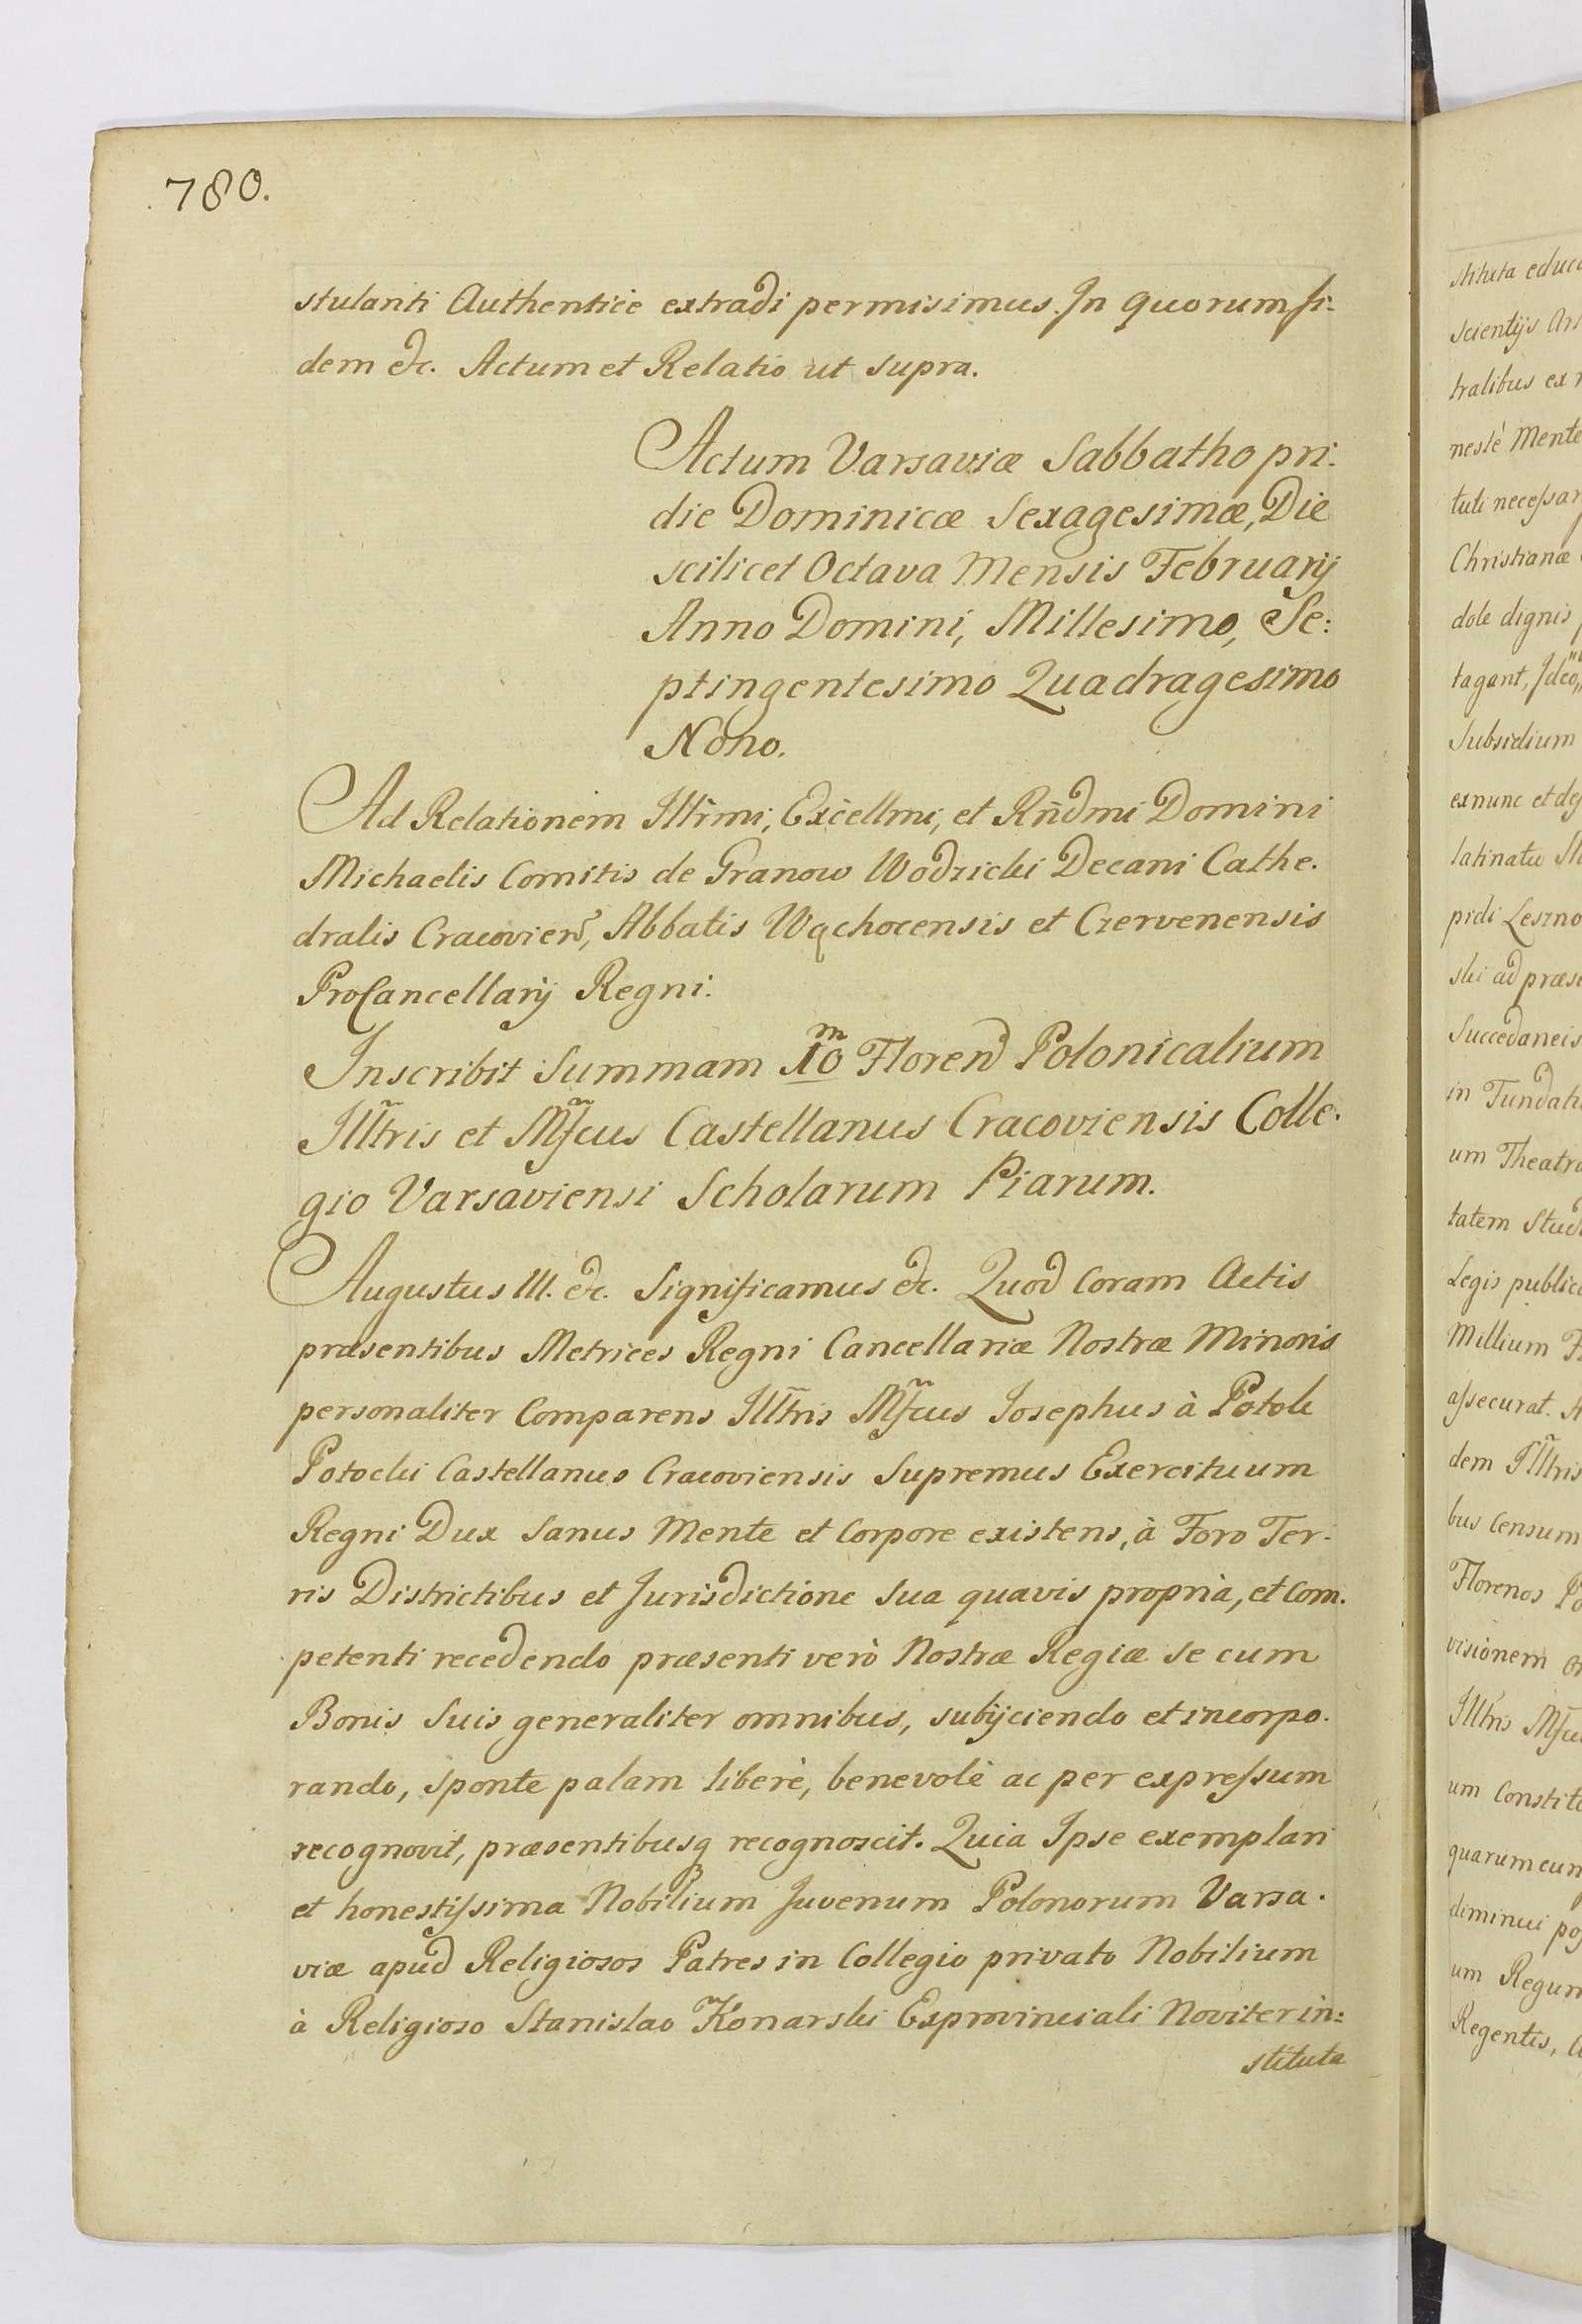 780.
stulanti Authenticè extradi permisimus. In quorum fi:
dem etc. Actum et Relatio ut supra.
Actum Varsaviæ Sabbatho pri:
die Dominicæ Sexagesimæ, Die
scilicet Octava Mensis Februarij
Anno Domini, Millesimo, Se:
ptingentesimo Quadragesimo
Nono.
Ad Relationem Illr̃mi, Excellmi, et Rñdmi Domini
Michaelis Comitis de Granow Wodzicki Decani Cathe.
dralis Cracovien̄, Abbatis Wąchocensis et Czervenensis
ProCancellarij Regni.
Inscribit Summam 10ᵐ Floren̄ Polonicalium
Illt̃ris et Mf̃cus Castellanus Cracoviensis Colle.
gio Varsaviensi Scholarum Piarum.
Augustus III. etc. Significamus etc. Quod Coram Actis
præsentibus Metrices Regni Cancellariæ Nostræ Minoris
personaliter Comparens Illt̃ris Mf̃cus Iosephus à Potok
Potocki Castellanus Cracoviensis Supremus Exercituum
Regni Dux Sanus Mente et Corpore existens, à Foro Ter:
ris Districtibus et Jurisdictione Sua quavis propria, et Com.
petenti recedendo præsenti verò Nostræ Regiæ se cum
Bonis Suis generaliter omnibus, subijciendo et incorpo.
rando, sponte palam liberè, benevolè ac per expreſsum
recognovit, præsentibusq recognoscit. Quia Ipse exemplari
et honestiſsima Nobilium Juvenum Polonorum Varsa.
viæ apud Religiosos Patres in Collegio privato Nobilium
à Religioso Stanislao Konarski Exprovinciali Noviter in:
stituta
stituta educa
scientijs Ar
tralibus ex
nestè Mente
tuti neceſsar
Christianæ
dole dignis
tagant, Ideo
Subsidium
exnunc et de
latinatu
pidi Leszno
ski ad præs
Succedaneis
in Fundati
um Theatr
tatem Stud
Legis public
Millium F
aſsecurat. A
dem Illt̃ris
bus Censum
Florenos Po
visionem
Illtris Mfcu
um Constit
quarumcun
diminui poſ
um Regun
Regentis,